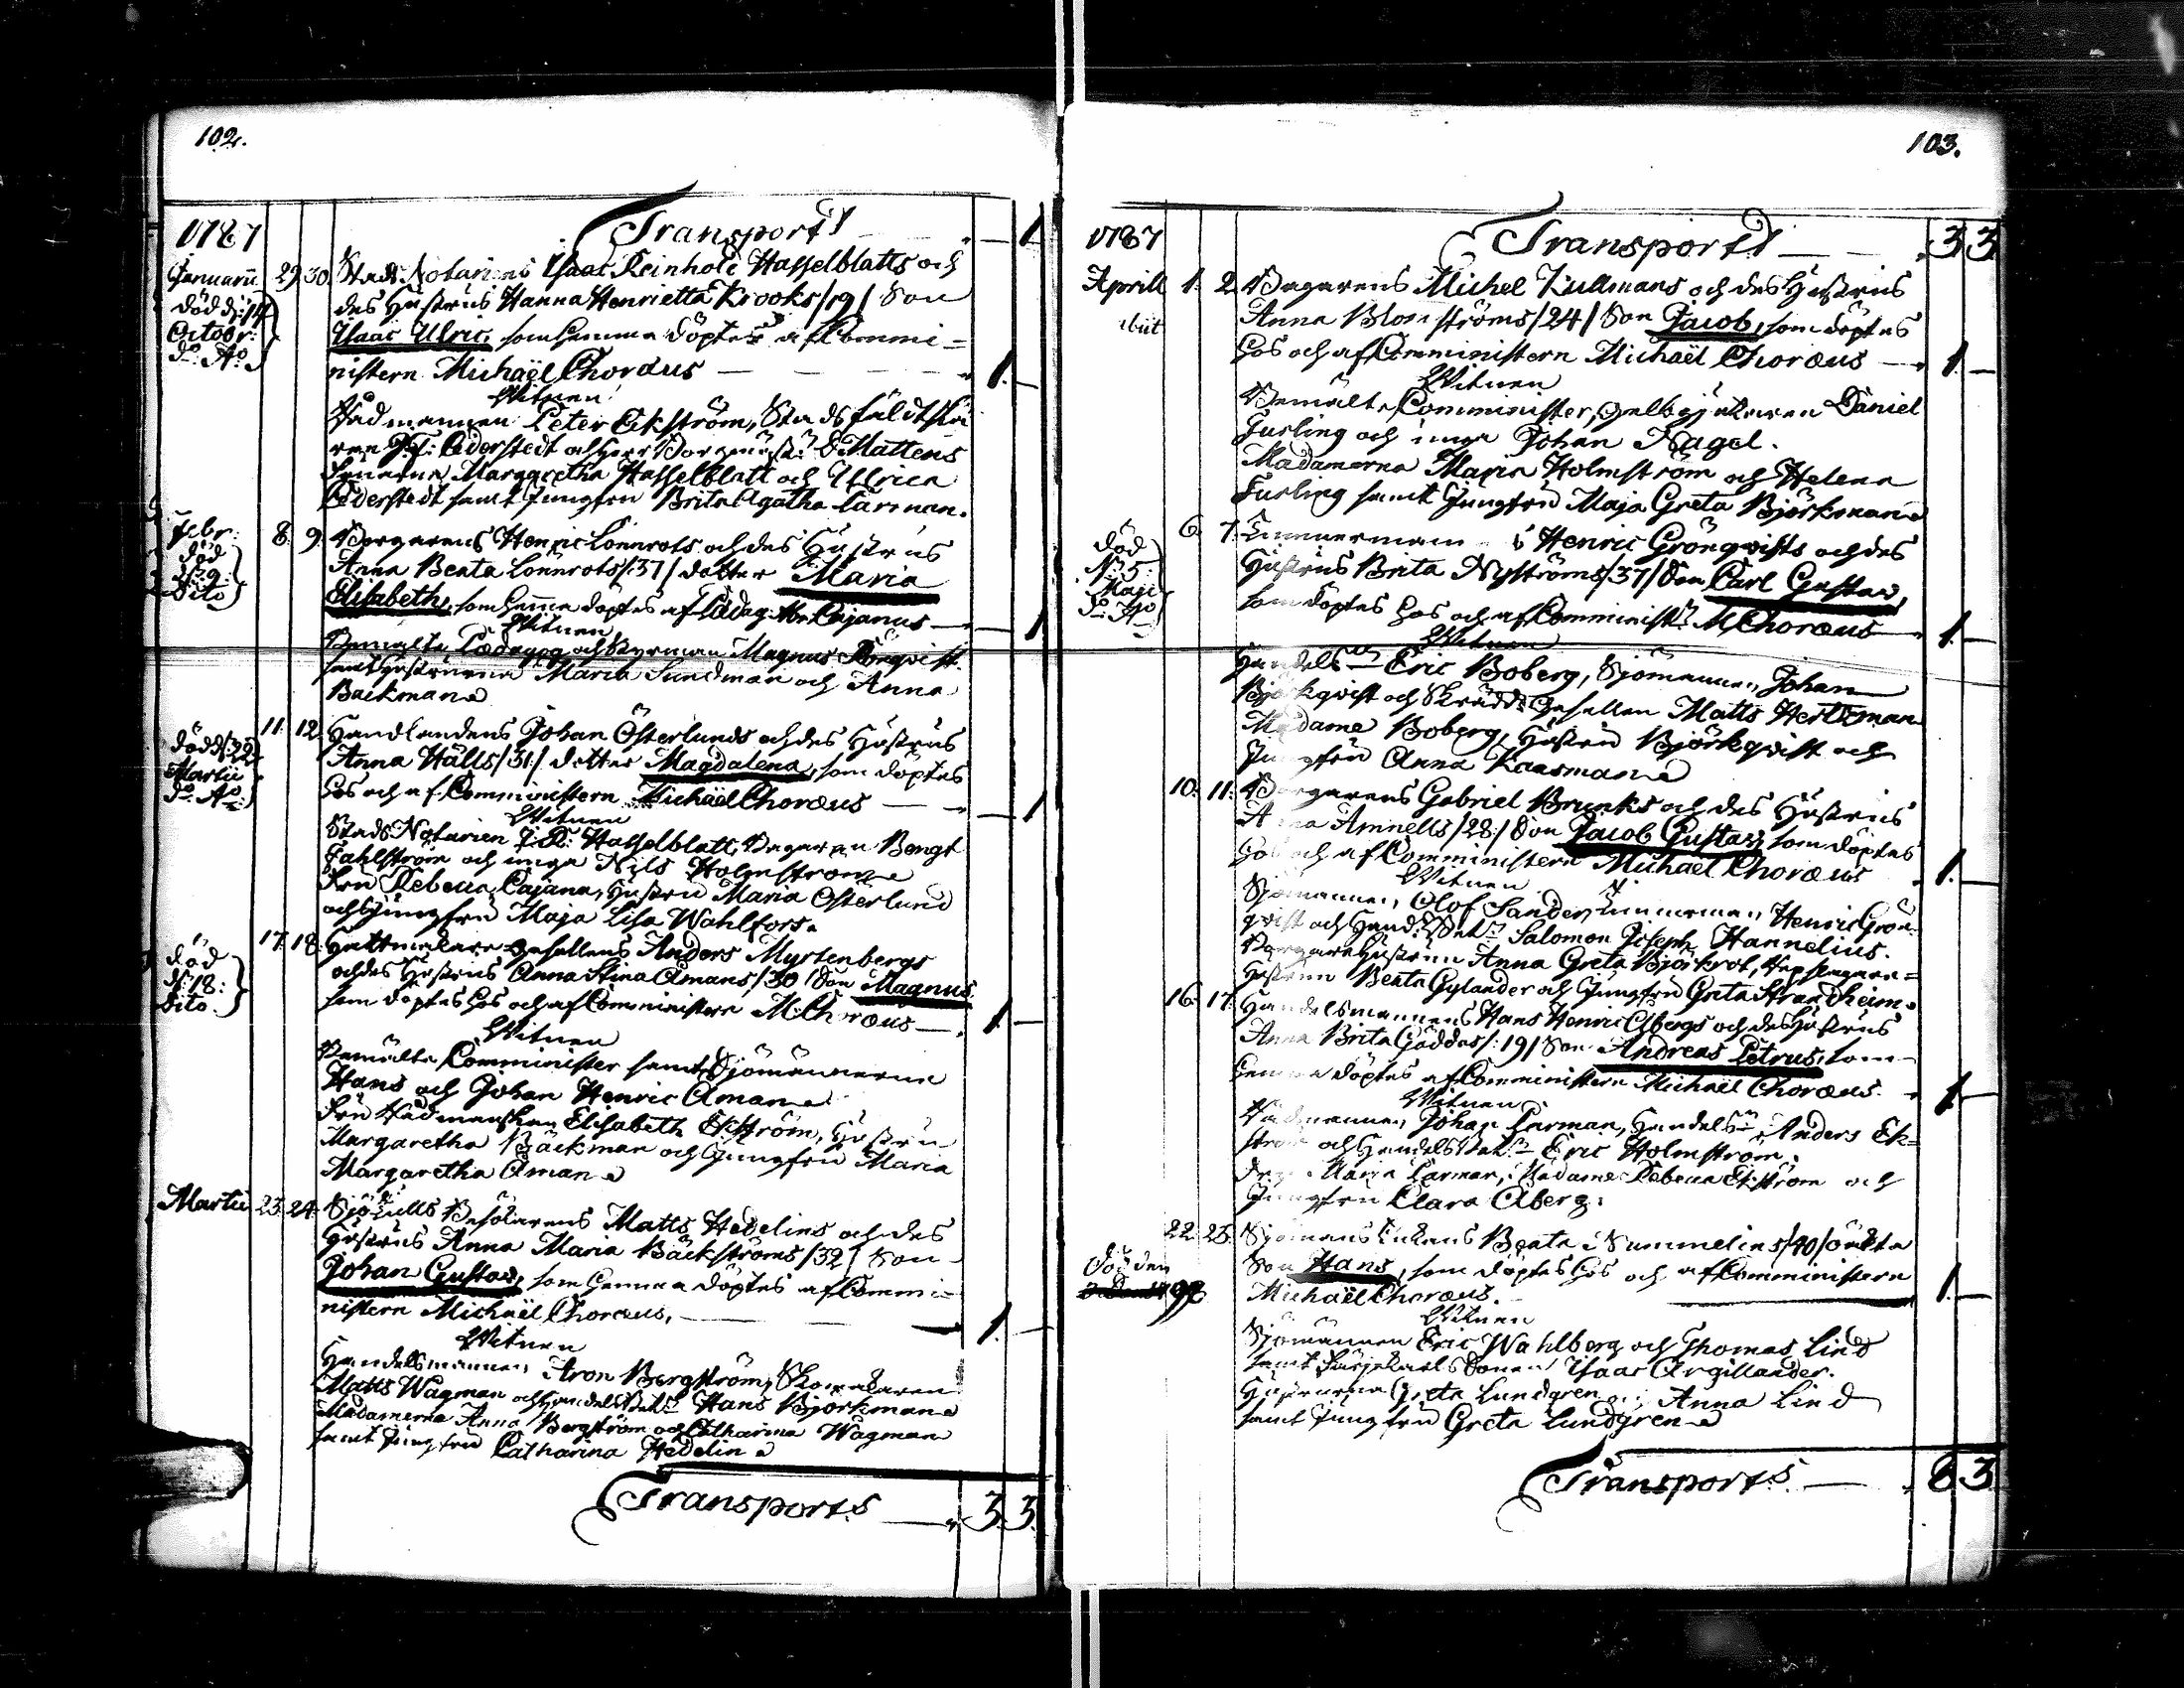 102.
1787
Transport 1
Januarii 29. 30. Stads Notariens Isaac Reinhold Hasselblatts och
död d: 14 des Hustrus Hanna Henrietta Krooks /19/ Son
Octobr: Isaac Ulric, som hemma döptes af Commi=
do Ao nistern Michaël Choræus 1.
Witnen
Rådmannen Peter Ekström, Stads fältskä
ren Cederstedt och Herr Mattens
Fruarna Margaretha Hasselblatt och Ullrica
Cederstedt samt Jungfru Brita Agatha Carman.
Febr: 8. 9. Borgarens Henric Lönnrots och des Hustrus
död Anna Beata Lönnrots /:37/ dotter Maria
d: 9: dito Elisabeth, som hemma döptes af Pædag: Cajanus 1
Witnen
Bemälte Pædagog och Styrman Magnus
samt hustrurna Maria Sundman och Anna
Backman
11. 12. Handlandens Johan Österlunds och des Hustrus
död d: 22 Anna Hälls /31/ dotter Magdalena, som döptes
Martii do Ao hos och af Comministern Michaël Choræus 1
Witnen
Stads Notarien I: R: Hasselblatt, Bagaren Bengt
Fahlström och unga Nils Holmström
Fru Rebecca Cajana, Hustru Maria Österlund
och Jungfru Maja Lisa Wahlfors.
17. 18. Hattmakare Gesellens Anders Myrtenbergs
död och des Hustrus Anna Stina Åmans /30/ Son Magnus
d: 18: dito. som döptes hos och af Comministern M: Choræus 1.
Witnen
Bemälte Comminister samt Sjömännerne
Hans och Johan Henric Åman
Fru Rådmanskan Elisabeth Ekström, Hustru
Margaretha Bäckman och Jungfru Maria
Margaretha Åman
Martii 23. 24. Sjö Tulls Besökarens Matts Hedelins och des
Hustrus Anna Maria Bäckströms /32/ Son
Johan Gustav, som hemma döptes af Commi=
nistern Michaël Choræus, 1.
Witnen
Handelsmannen Aron Bergström, Skomakaren
Matts Wagman och Handels Hans Björkman
Madamerna Anna Bergström och Catharina Wagman
samt Jungfru Catharina Hedelin
Transports 3. 3.
103.
1787
Transport 3 3
Aprill 1. 2. Bagarens Michel Kullmans och des Hustrus
abiit Anna Blomströms /24/ Son Jacob, som döptes
hos och af Comministern Michaël Choræus 1.
Witnen
Bemälte Comminister, Gelbgjutaren Daniel
Furling och unga Johan Nagel.
Madamerna Maria Holmström och Helena
Furling samt Jungfru Maja Greta Björkman
6. 7. Timmerman Henric Grönqvists och des
död Hustrus Brita Nyströms /37/ Son Carl Gustav,
5 Maji do Ao som döptes hos och af Comminist: M: Choræus 1.
Witnen
Handels Eric Boberg, Sjömannen Johan
Björkqvist och Skrädd: Gesellen Matts Hertzman
Madame Boberg, Hustru Björkqvist och
Jungfru Anna Kaasman
10. 11. Borgarens Gabriel Brunks och des Hustrus
Anna Amnells /28/ Son Jacob Gustav, som döptes
hos och af Comministern Michaël Choræus 1.
Witnen
Sjömannen Olof Sander, Timmerman Henric Grön
qvist och Salomon Joseph Hannelius.
Borgare Hustrun Anna Greta Björkrot, Repslagare=
Hustrun Beata Gylander och Jungfru Greta Strandheim.
16. 17. Handelsmannens Hans Henric Åbergs och des Hustrus
Anna Brita Gäddas /:19/ Son Andreas Petrus, som
hemma döptes af Comministern Michaël Choræus. 1.
Witnen
Rådmannen Johan Carman, Handels Anders Ek=
ström och Handels Eric Holmström.
Fru Maria Carman, Madame Rebecca Ekström och
Jungfru Clara Åberg.
22. 25. Sjömans Enkans Beata Nummelins /40/ oäkta
död den Son Hans, som döptes hos och af Comministern 1.
Michaël Choræus.
Witnen
Sjömännen Eric Wahlberg och Thomas Lind
samt Sonen Isaac Argillander.
Hustrurna Greta Lundgren och Anna Lind
samt Jungfru Greta Lundgren
Transports 8 3